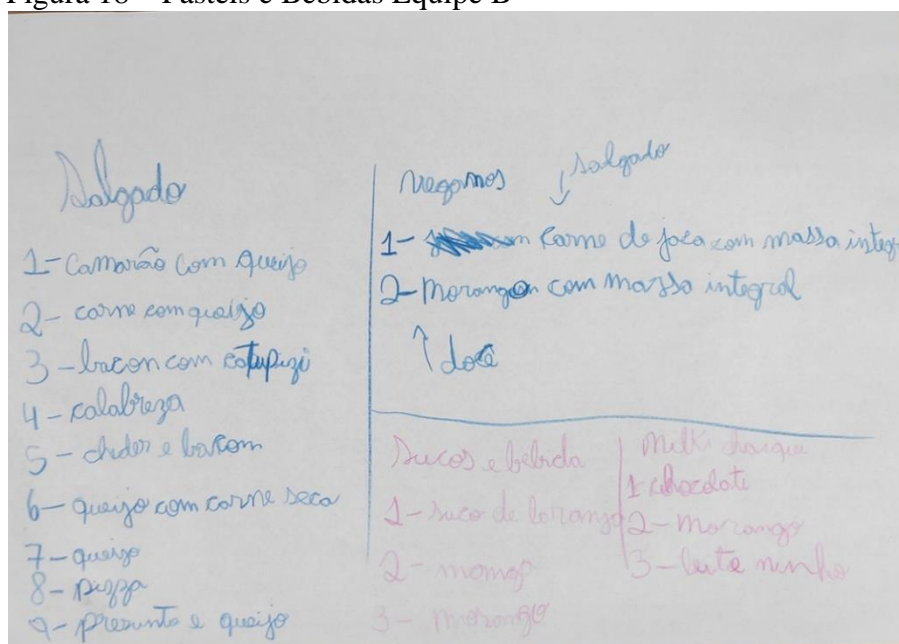 Figura 18 – Pastéis e Bebidas Equipe B
Salgado
1- Camarão com queijo
2- carne com queijo
3- bacon com catupizi
4- calabreza
5- cheder e bacom
6- queijo com carne seca
7- queijo
8- pizza
9- presunto e queijo
veganos
salgado
1- carne de jaca com massa integ
2- morango com massa integral
doce
Sucos e bebida
1- suco de laranja
2-
3- morango
Milk chaique
1 chocolate
2- morango
3- leite ninho